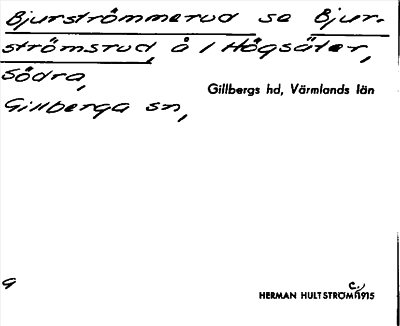 Bjurströmmerud se Bjur-
strömsrud, å / Högsäter,
Södra,
Gillberga sn,
Gillbergs hd, Värmlands län
9
HERMAN HULTSTRÖM c. 1915